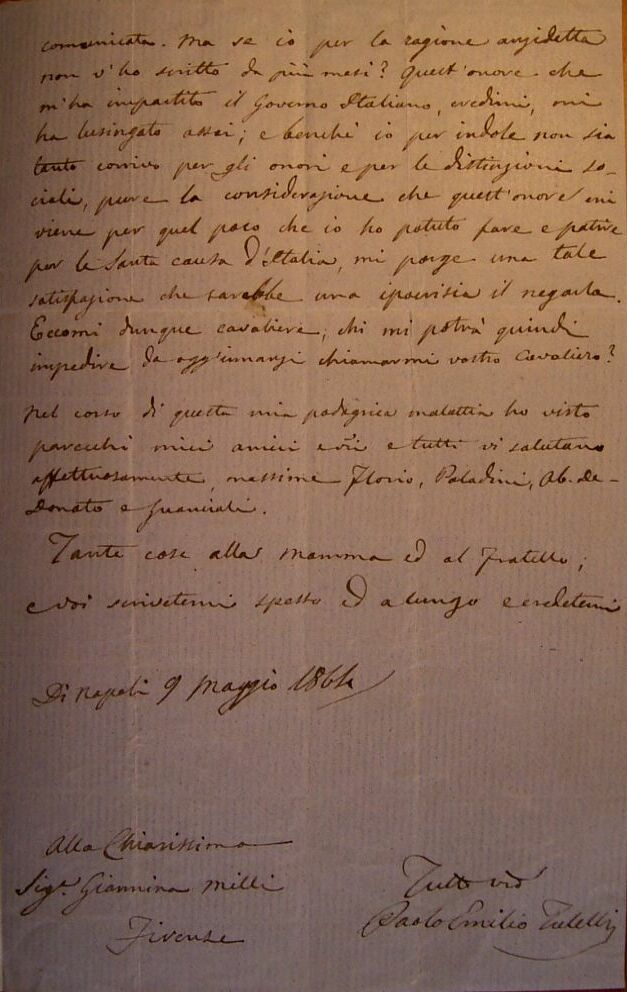 comunicata. Ma se io per la ragione anzidetta
non v'ho scritto da più mesi? Quest'onore che
m'ha impartito il Governo Italiano, credimi, mi
ha lusingato assai; e benché io per indole non sia
tanto corrivo per gli onori e per le distinzioni so-
ciali, pure la considerazione che quest'onore mi
viene per quel poco che io ho potuto fare e patire
per la Santa causa d'Italia, mi porge una tale
satisfazione che sarebbe una ipocrisia il negarla.
Eccomi dunque cavaliere; chi mi potrà quindi
impedire da ogg'innanzi chiamarmi vostro Cavaliero?
Nel corso di questa mia podagrica malattia ho visto
parecchi miei amici e tutti vi salutano
affettuosamente, massime Florio, Paladini, Ab. de-
Donato e Guanciali.
Tante cose alla Mamma ed al Fratello;
e voi scrivetemi spesso ed a lungo e credetemi
Di Napoli 9 Maggio 1864
Alla Chiarissima
Sig.ª Giannina Milli
Firenze
Tutto vro
Paolo Emilio Tulelli